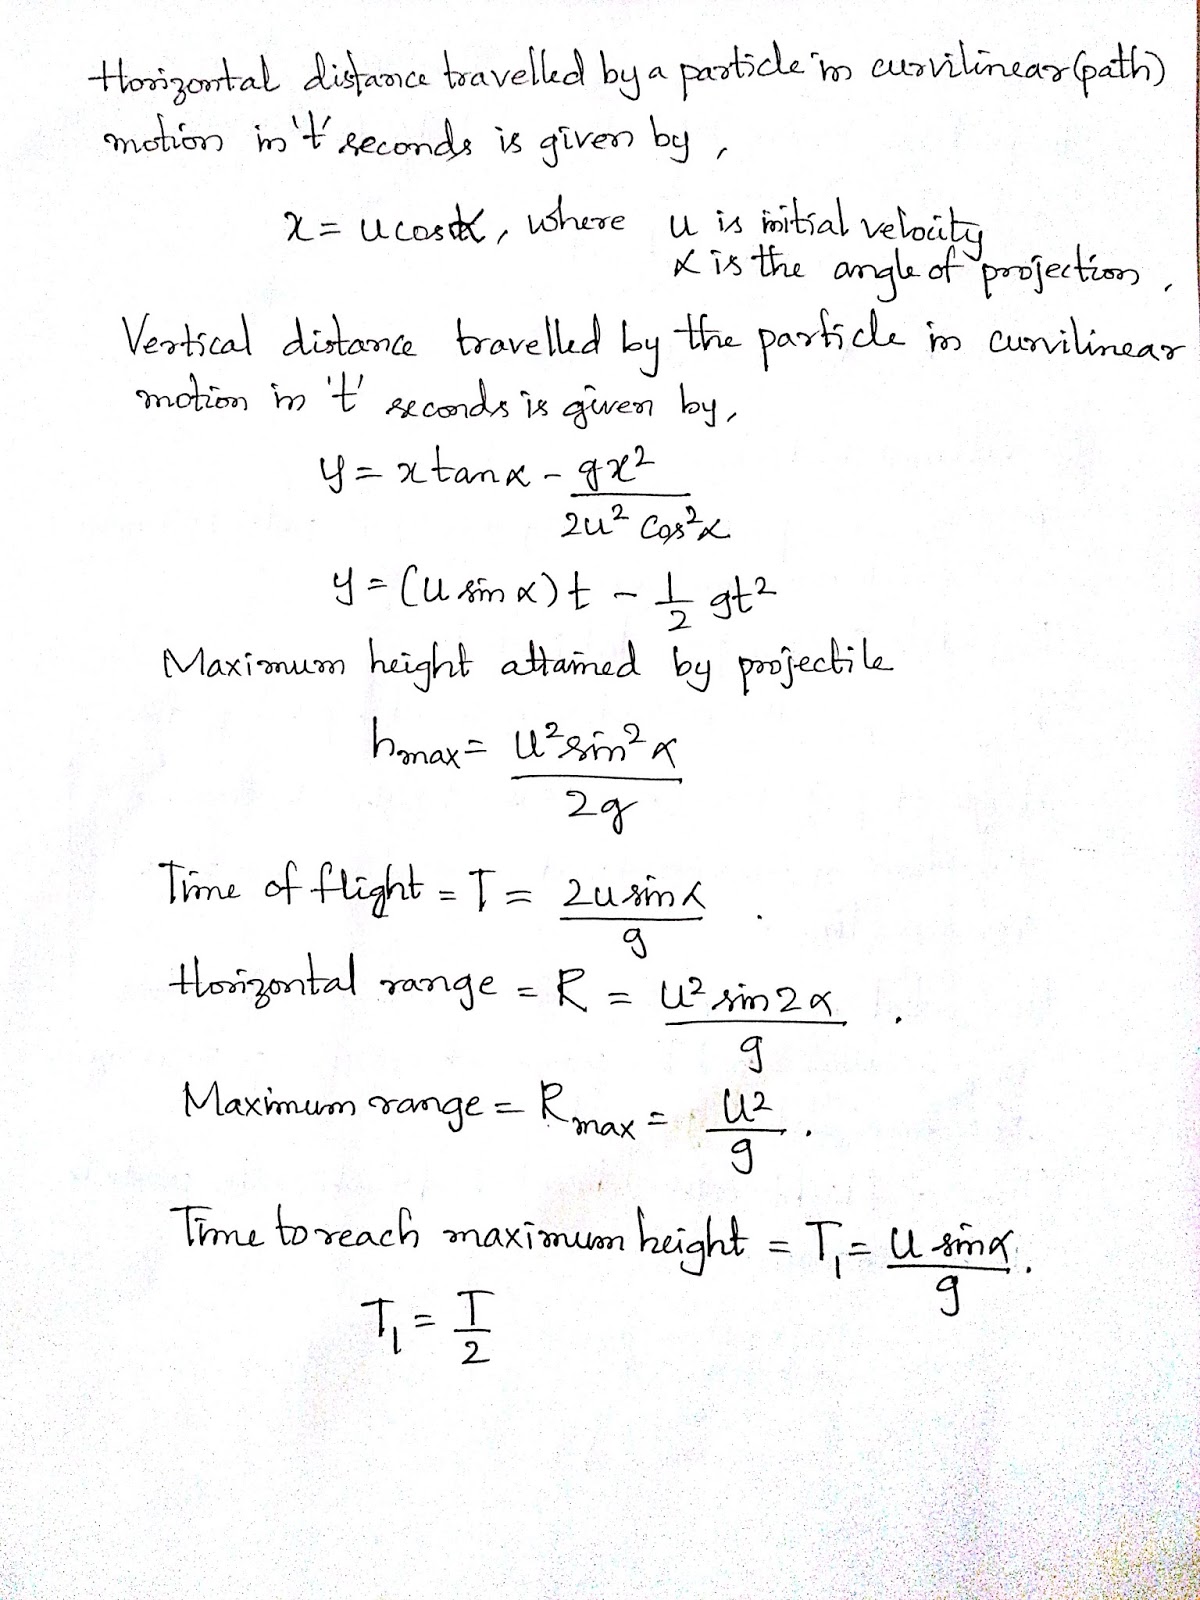 Horizontal distance travelled by a particle in curvilinear (path)
motion in 't' seconds is given by,
x = u cosα, where u is initial velocity
α is the angle of projection,
Vertical distance travelled by the particle in curvilinear
motion in 't' seconds is given by,
y = x tanα - gx²
2u² Cos²α
y = (u sin α) t - 1/2 gt²
Maximum height attained by projectile
hmax = u² sin² α
2g
Time of flight = T = 2u sinα
g
Horizontal range = R = u² sin 2α
g
Maximum range = Rmax = u²
g
Time to reach maximum height = T₁ = u sinα
g
T₁ = T
2